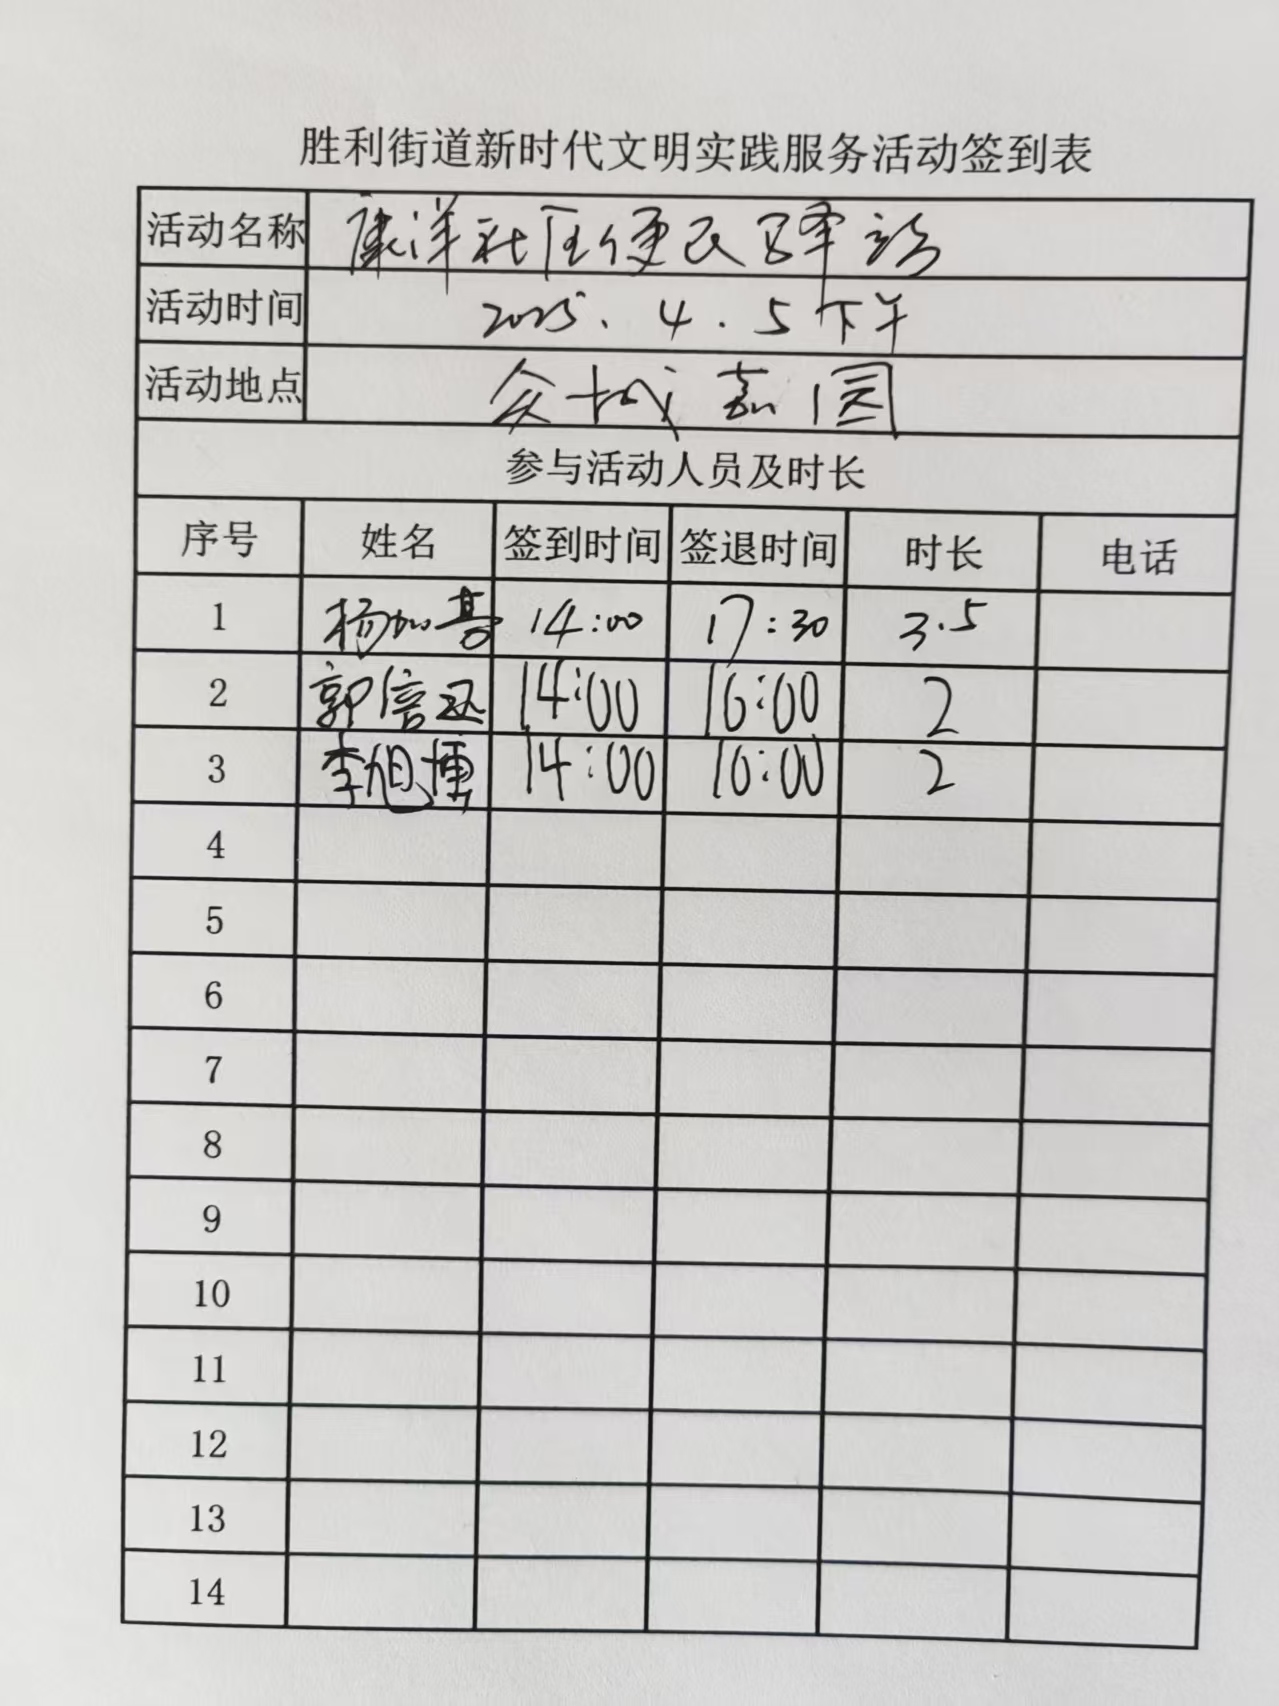 胜利街道新时代文明实践服务活动签到表
活动名称 康洋社区便民驿站
活动时间 2025.4.5下午
活动地点 众城嘉园
参与活动人员及时长
序号 姓名 签到时间 签退时间 时长 电话
1 杨如 14:00 17:30 3.5
2 郭倍 14:00 16:00 2
3 李旭博 14:00 16:00 2
4
5
6
7
8
9
10
11
12
13
14